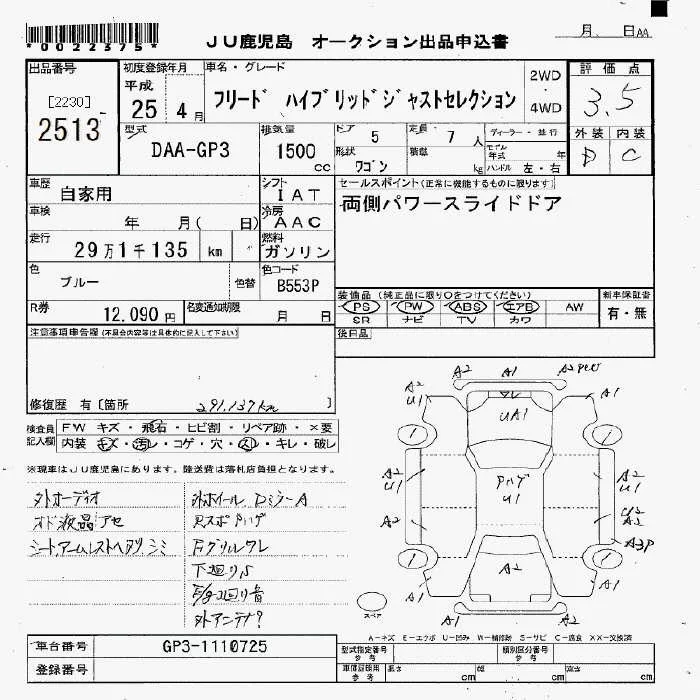 *0022375*
JU鹿児島 オークション出品申込書
月 日AA
出品番号
[2230]
2513
初度登録年月
平成
25 4 月
車名・グレード
フリード ハイブリッドジャストセレクション
2WD
4WD
評価点
3.5
型式
DAA-GP3
排気量
1500 cc
ドア 5
形状 ワゴン
定員 7 人
積載 kg
ディーラー・並行
モデル年式 年
ハンドル 左・右
外装 内装
D C
車歴
自家用
シフト
IAT
車検
年 月( 日)
冷房
AAC
走行
29万1千135 km
燃料
ガソリン
色
ブルー
色替
色コード
B553P
R券
12,090 円
名変通知期限
月 日
セールスポイント(正常に機能するものに限ります)
両側パワースライドドア
装備品(純正品に限り○をつけてください)
PS PW ABS エアB AW
SR ナビ TV カワ
新車保証書
有・無
後日品
注意事項申告欄(不具合内容等は具体的に記入して下さい)
修復歴 有〔箇所 291,137km 〕
検査員記入欄
FW キズ・飛石・ヒビ割・リペア跡・×要
内装 キズ・汚レ・コゲ・穴・スレ・キレ・破レ
※現車はJU鹿児島にあります。陸送費は落札店負担となります。
外オーディオ
外ホイール DミラーA
オド液晶アセ
RスポPハゲ
シート、アームレストヘタリ、シミ
Fグリルワレ
下廻りS
外アンテナ?
A2 U1
A2 A1
A1
UA1
1 1
A2 U1
Pハゲ U1
A2 U1
A2
A3P
1 1
A2
A1 A1
A1 A2
スペア
A-キズ E-エクボ U-凹み W-補修跡 S-サビ C-腐食 XX-交換済
車台番号
GP3-1110725
登録番号
型式指定番号 参考
類別区分番号 参考
車体証明用 参考
長さ cm
幅 cm
高さ cm